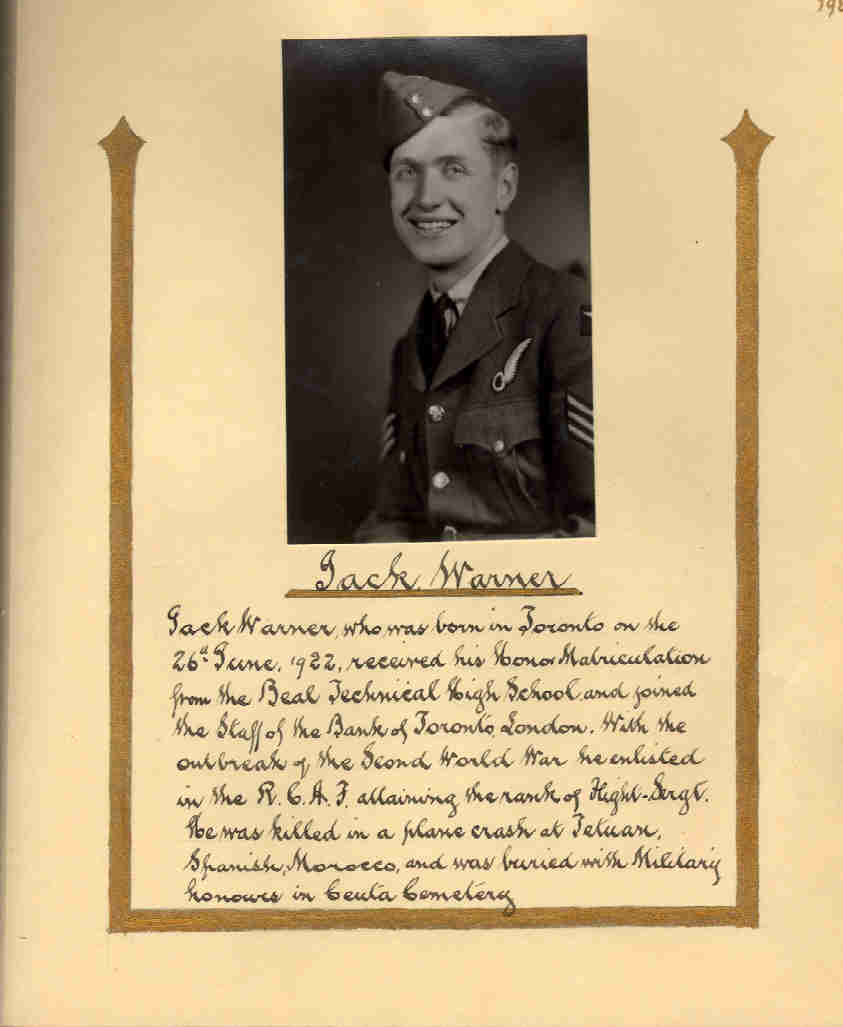 198
Jack Warner
Jack Warner, who was born in Toronto on the
26th June, 1922, received his Honor Matriculation
from the Beal Technical High School and joined
the Staff of the Bank of Toronto, London. With the
outbreak of the Second World War he enlisted
in the R.C.A.F. attaining the rank of Flight-Sergt.
He was killed in a plane crash at Tetuan,
Spanish, Morocco, and was buried with Military
honours in Ceuta Cemetery